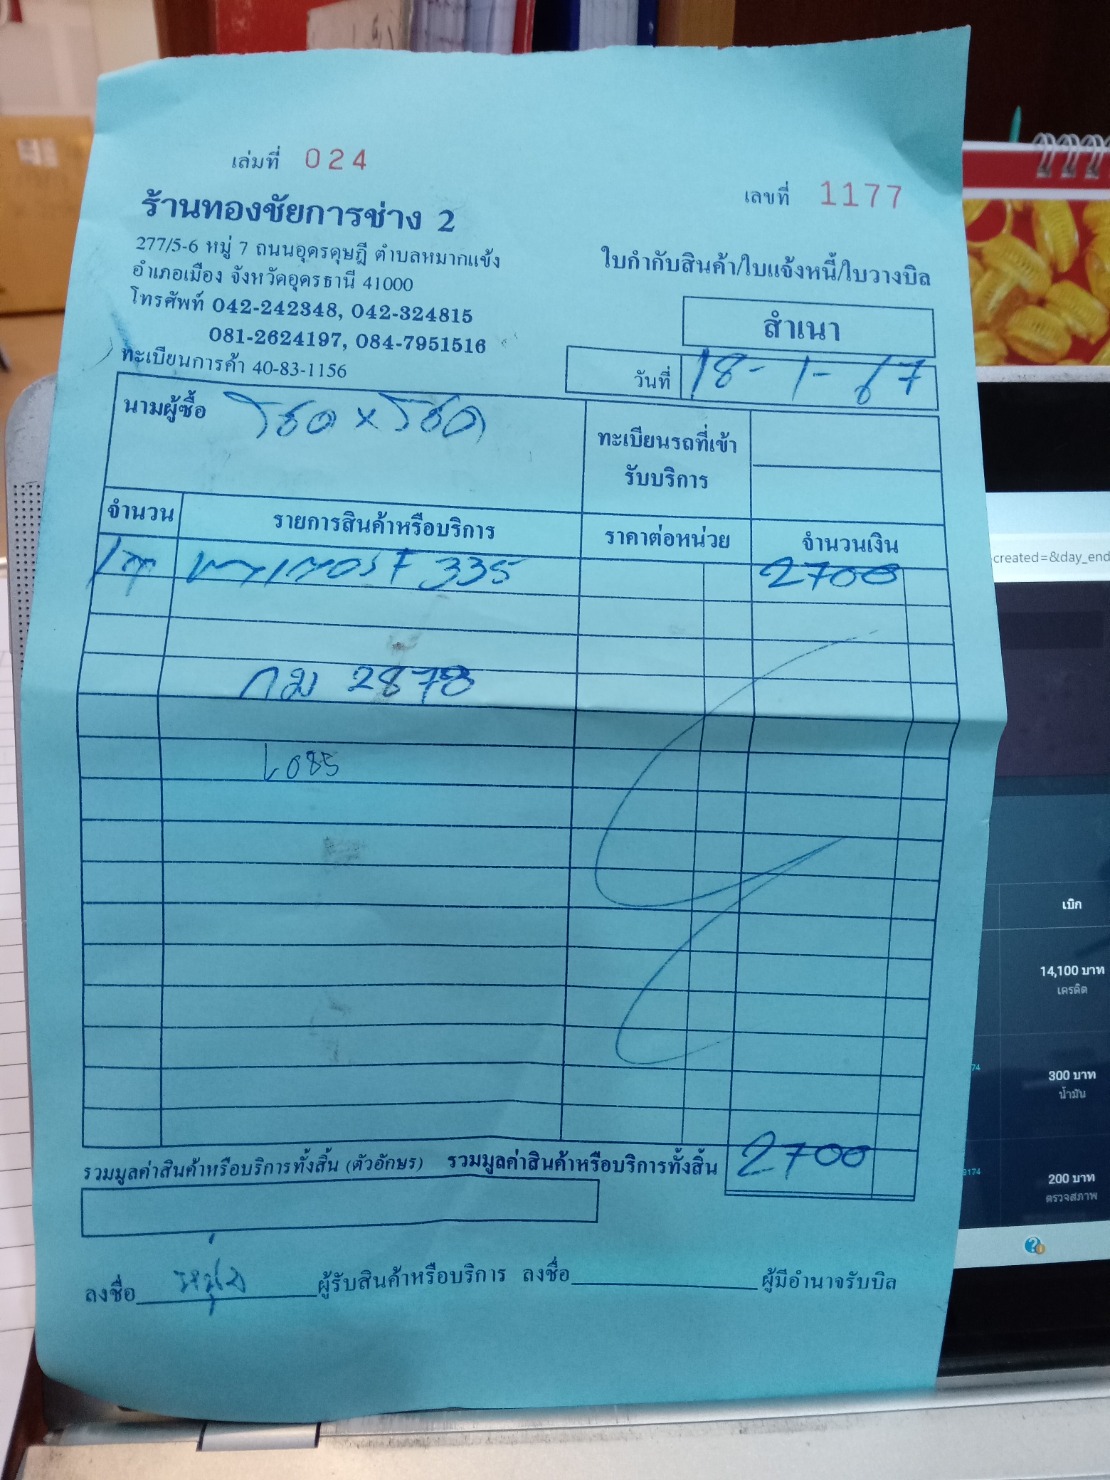 เล่มที่ 024
เลขที่ 1177
ร้านทองชัยการช่าง 2
277/5-6 หมู่ 7 ถนนอุดรดุษฎี ตำบลหมากแข้ง
อำเภอเมือง จังหวัดอุดรธานี 41000
โทรศัพท์ 042-242348, 042-324815
081-2624197, 084-7951516
ทะเบียนการค้า 40-83-1156
ใบกำกับสินค้า/ใบแจ้งหนี้/ใบวางบิล
สำเนา
วันที่ 18-1-67
นามผู้ซื้อ โชค x โชค
ทะเบียนรถที่เข้า
รับบริการ
จำนวน รายการสินค้าหรือบริการ ราคาต่อหน่วย จำนวนเงิน
335 2700
กม 2878
รวมมูลค่าสินค้าหรือบริการทั้งสิ้น (ตัวอักษร) รวมมูลค่าสินค้าหรือบริการทั้งสิ้น 2700
ลงชื่อ ผู้รับสินค้าหรือบริการ ลงชื่อ ผู้มีอำนาจรับบิล
created=&day_end
เบิก
14,100 บาท
เครดิต
300 บาท
น้ำมัน
200 บาท
ตรวจสภาพ